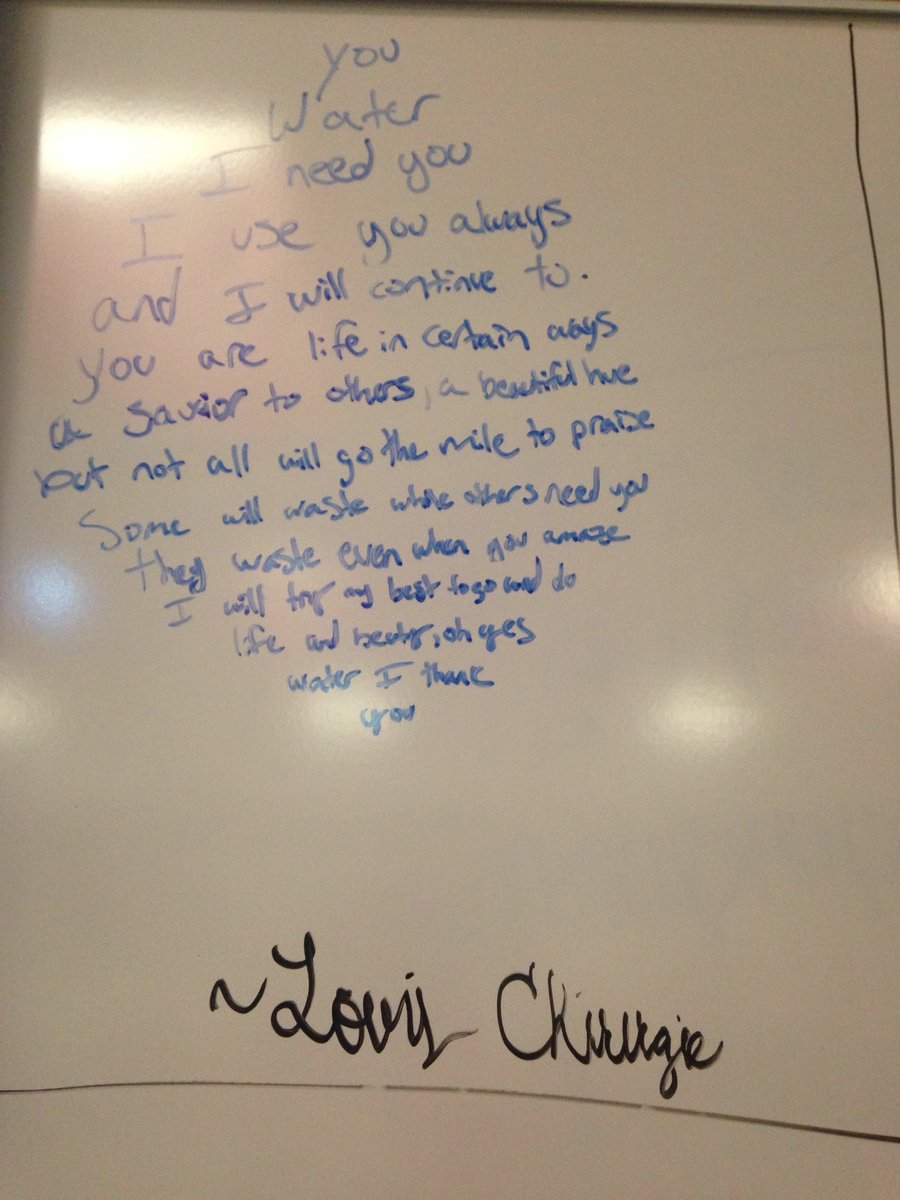 you
Water
I need you
I use you always
and I will continue to.
you are life in certain ways
a savior to others, a beautiful hue
but not all will go the mile to praise
Some will waste while others need you
they waste even when you amaze
I will try my best to go and do
life and beaty, oh yes
water I thank
you
~Louis Chirurgie